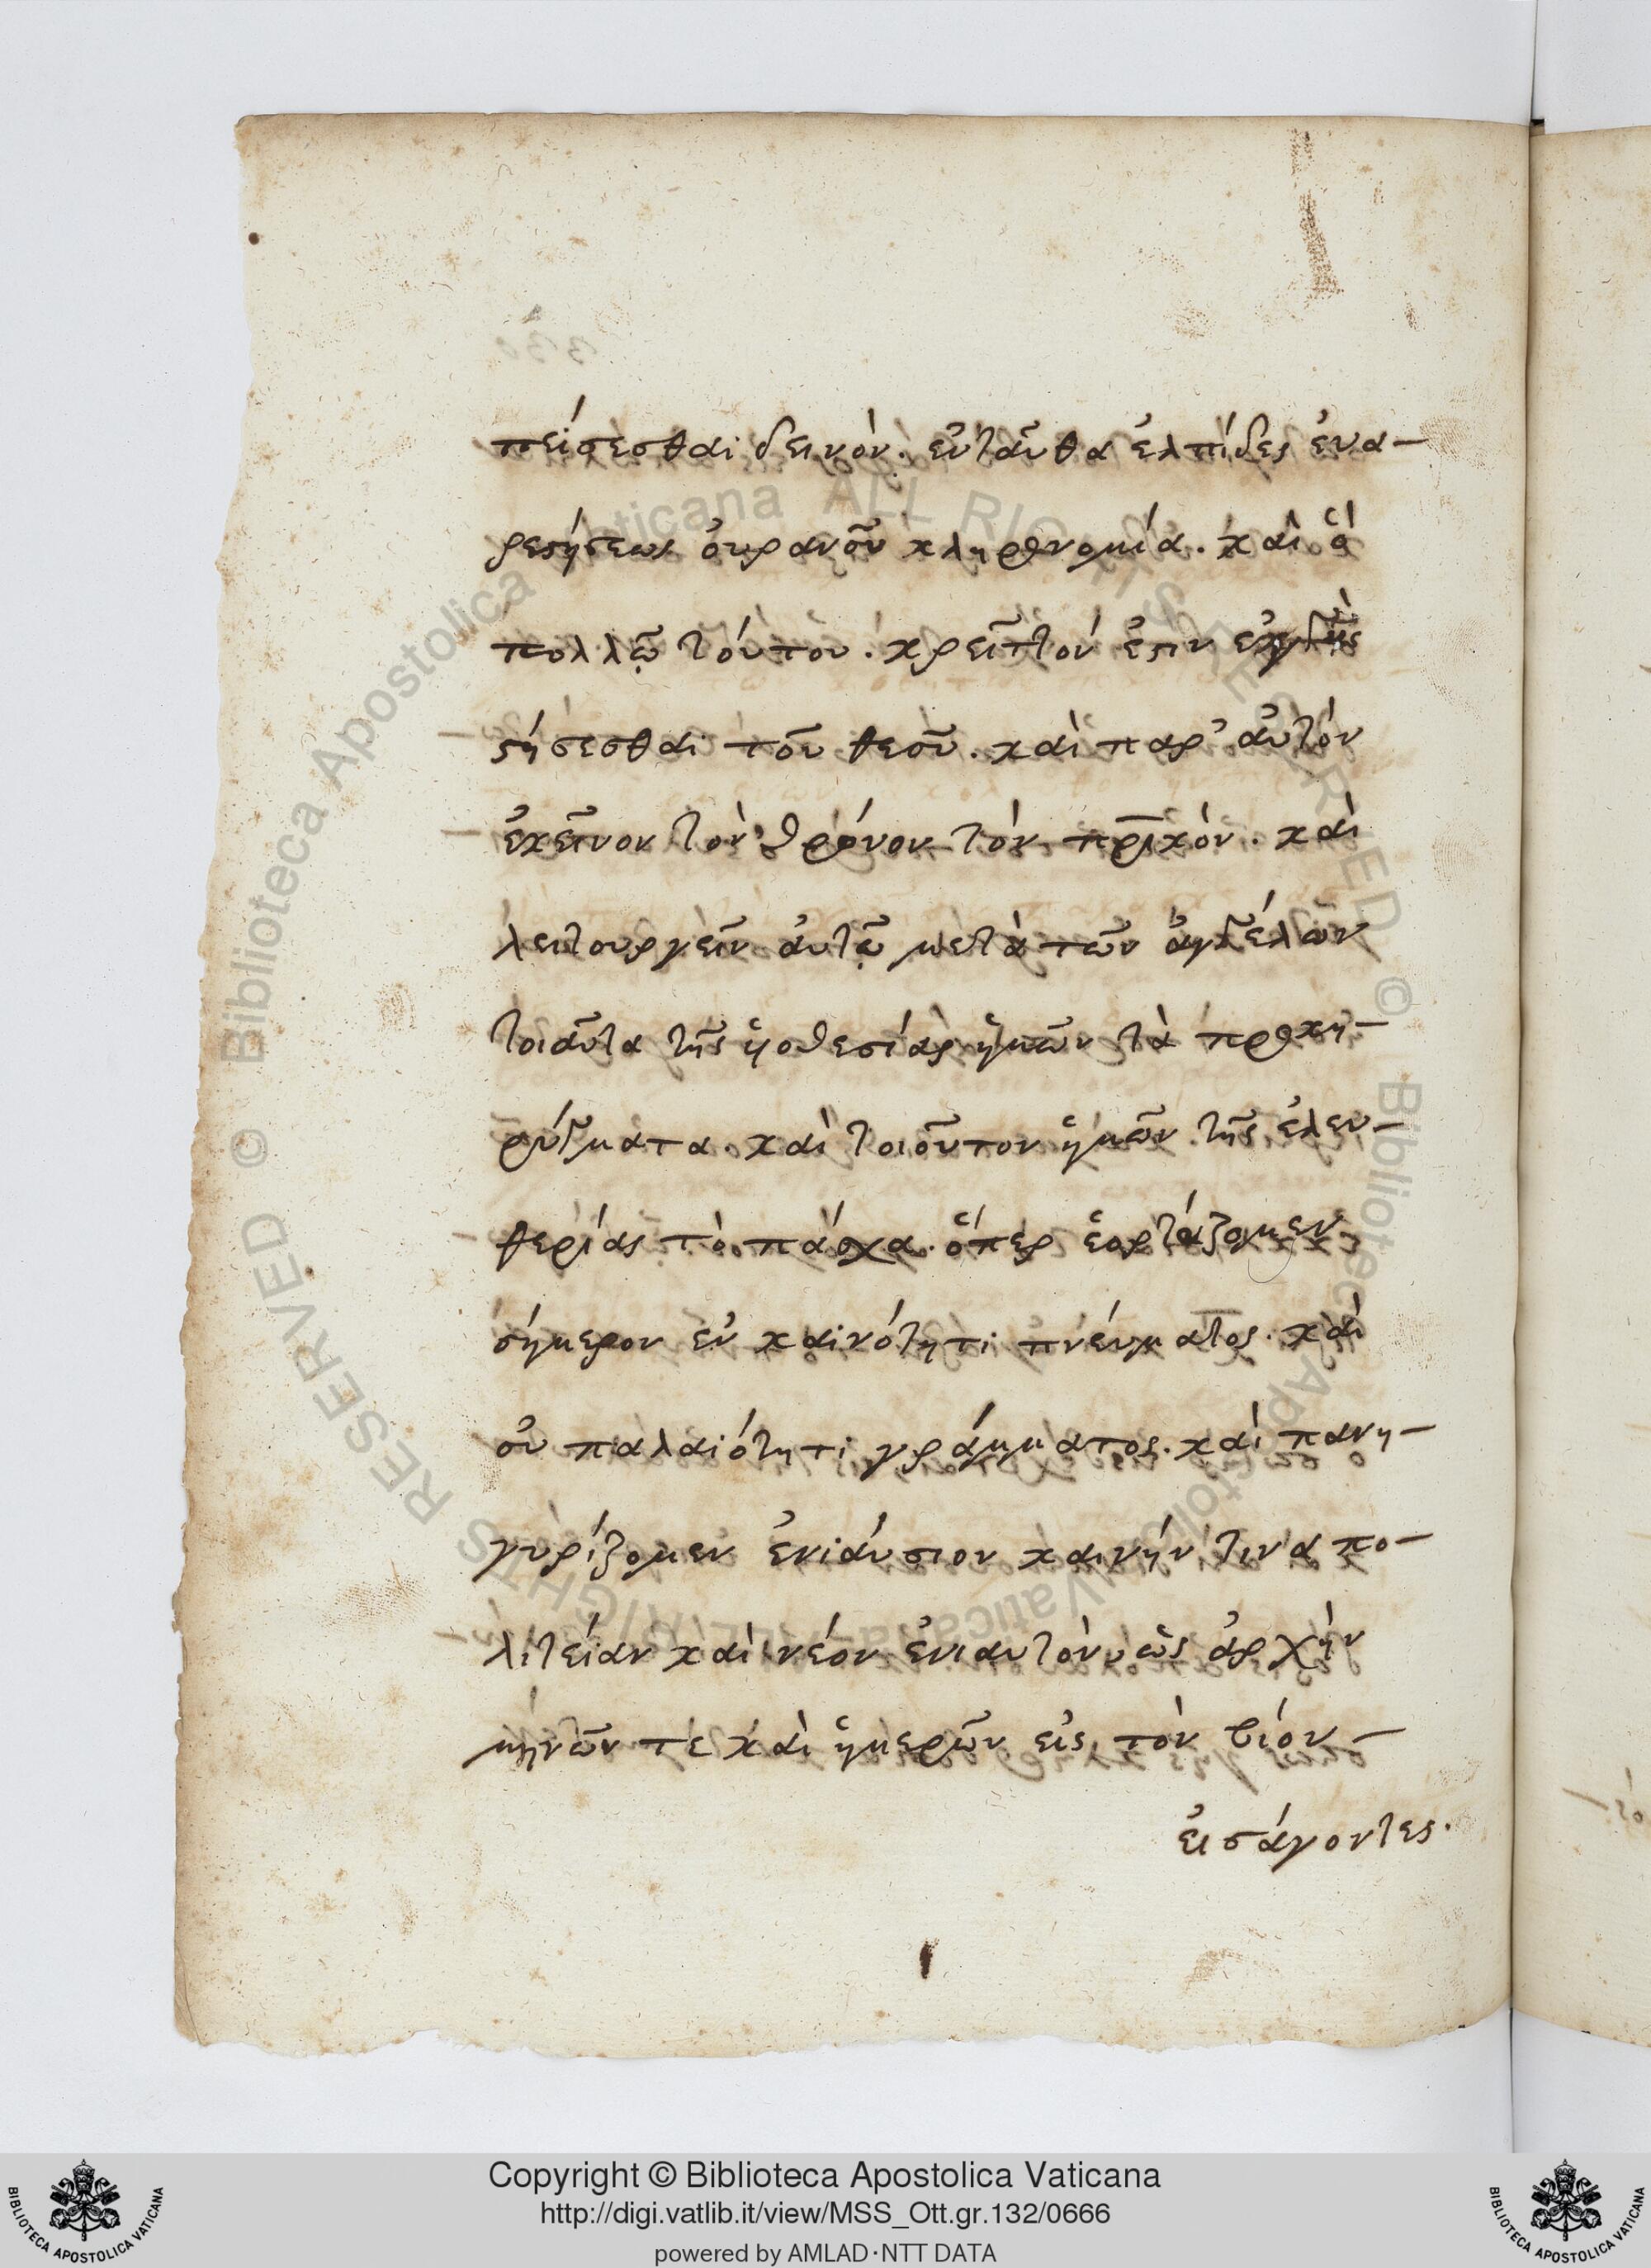 πείσεσθαι δεινὸν. ἐνταῦθα ἐλπίδες ἐνα-
ρεστήσεως οὐρανοῦ κληρονομία. καὶ ἃ
πολλῷ τούτου. κρεῖττόν ἐστιν ἐγγὺς
στήσεσθαι τοῦ θεοῦ. καὶ παρ' αὐτὸν
ἐκεῖνον τὸν θρόνον τὸν πρικὸν. καὶ
λειτουργεῖν αὐτῷ μετὰ τῶν ἀγγέλων
τοιαῦτα τῆς ὑοθεσίας ἡμῶν τὰ προκη-
ρύγματα. καὶ τοιοῦτον ἡμῶν τῆς ἐλευ-
θερίας τὸ πάσχα. ὅπερ ἑορτάζομεν
σήμερον ἐν καινότητι πνεύματος. καὶ
οὐ παλαιότητι γράμματος. καὶ πανη-
γυρίζομεν ἐνιαύσιον καινήν τινα πο-
λιτείαν καὶ νέον ἐνιαυτὸν, ὡς ἀρχὴν
μηνῶν τε καὶ ἡμερῶν εἰς τὸν βίον-
εἰσάγοντες.
© Biblioteca Apostolica Vaticana ALL RIGHTS RESERVED © Biblioteca Apostolica Vaticana ALL RIGHTS RESERVED
Copyright © Biblioteca Apostolica Vaticana
http://digi.vatlib.it/view/MSS_Ott.gr.132/0666
powered by AMLAD·NTT DATA
BIBLIOTECA APOSTOLICA VATICANA
BIBLIOTECA APOSTOLICA VATICANA